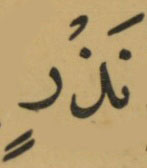 نَذْرٍ